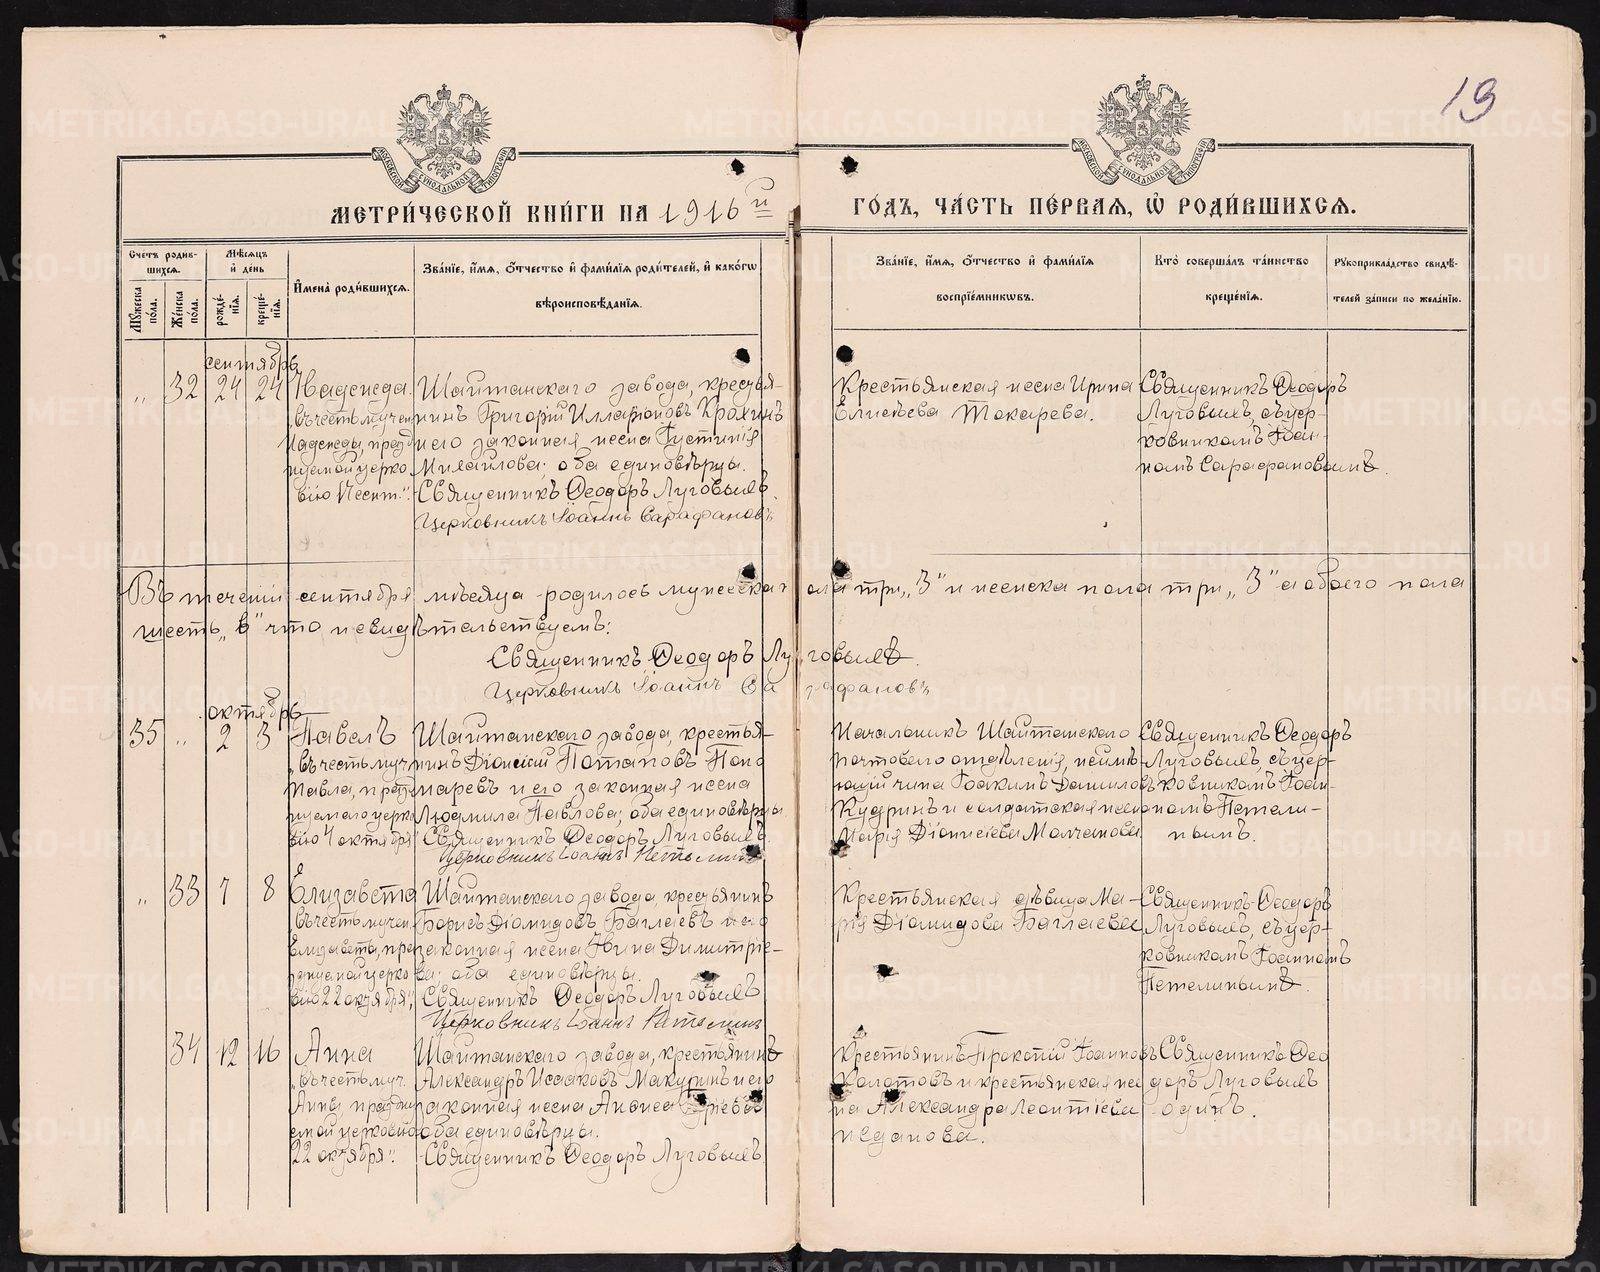 19
МОСКОВСКОЙ СѴНОДАЛЬНОЙ ТИПОГРАФІИ
МОСКОВСКОЙ СѴНОДАЛЬНОЙ ТИПОГРАФІИ
МЕТРИ́ЧЕСКОЙ КНИ́ГИ НА 1916 й
ГО́ДЪ, ЧА́СТЬ ПЕ́РВАЯ, Ѡ҆ РОДИ́ВШИХСЯ.
Счетъ родив-
шихся.
Мꙋ́жеска по́ла.
Же́нска по́ла.
Мѣ́сяцъ
и҆ день
рожде́нїя.
креще́нїя.
И҆мена̀ роди́вшихся.
Зва́нїе, и҆́мя, ѻ҆́тчество и҆ фами́лїя роди́телей, и҆ како́гѡ
вѣроисповѣ́данїя.
Зва́нїе, и҆́мя, ѻ҆́тчество и҆ фами́лїя
воспрїе́мникѡвъ.
Кто̀ соверша́лъ та́инство
креще́нїя.
Рꙋкоприкла́дство свидѣ́-
телей за́писи по жела́нїю.
сентябрь
„ 32 24 24 Надежда
„въ честь мучен.
Надежды, празд
нуемой церко
вію 17 сент.“
Шайтанскаго завода, кресть-
нинъ Григорій Илларіоновъ Крохинъ
и его законная жена Іустинія
Михайлова; оба единовѣрцы.
Священникъ Ѳеодоръ Луговыхъ
Церковникъ Іоаннъ Сарафановъ
Крестьянская жена Ирина
Елисѣева Токарева.
Священникъ Ѳеодоръ
Луговыхъ, съ цер-
ковникомъ Іоан-
номъ Сарафановымъ.
Въ теченіи сентября мѣсяца родилось мужеска пола три „3“ и женска пола три „3“ а обоего пола
шесть „6“ что и свидѣтельствуемъ:
Священникъ Ѳеодоръ Луговыхъ.
Церковникъ Іоаннъ Сарафановъ
октябрь
35 „ 2 3 Павелъ
„въ честь муч
Павла, празд
нуемаго церко
вію 4 октября“
Шайтанскаго завода, крестья-
нинъ Діонисій Потаповъ Поно
маревъ и его законная жена
Людмила Павлова; оба единовѣрцы
Священникъ Ѳеодоръ Луговыхъ
Церковникъ Іоаннъ Петелинъ
Начальникъ Шайтанскаго
почтоваго отдѣленія, неимѣ-
ющій чина Іоакимъ Даниловъ
Кудринъ и солдатская жена
Марія Діонисіева Молчанова.
Священникъ Ѳеодоръ
Луговыхъ, съ цер-
ковникомъ Іоан-
номъ Петели-
нымъ.
„ 33 7 8 Елизавета
„въ честь мучен.
Елизаветы, пра
зднуемой церко
вію 22 октября“;
Шайтанскаго завода крестьянинъ
Борисъ Діомидовъ Баглаевъ и его
законная жена Анна Димитріе-
ва; оба единовѣрцы.
Священникъ Ѳеодоръ Луговыхъ
Церковникъ Іоаннъ Петелинъ
Крестьянская дѣвица Ма-
рія Діомидова Баглаева
Священникъ Ѳеодоръ
Луговыхъ, съ цер-
ковникомъ Іоанномъ
Петелинымъ.
34 12 16 Анна
„въ честь муч.
Анны, праздну
емой церковію
22 октября“.
Шайтанскаго завода, крестьянинъ
Александръ Исааковъ Макуринъ и его
законная жена
оба единовѣрцы.
Священникъ Ѳеодоръ Луговыхъ
Крестьянинъ Прокопій Іоанновъ
Колотовъ и крестьянская же
на Александра Леонтіева
Жданова.
Священникъ Ѳео
доръ Луговыхъ
одинъ.